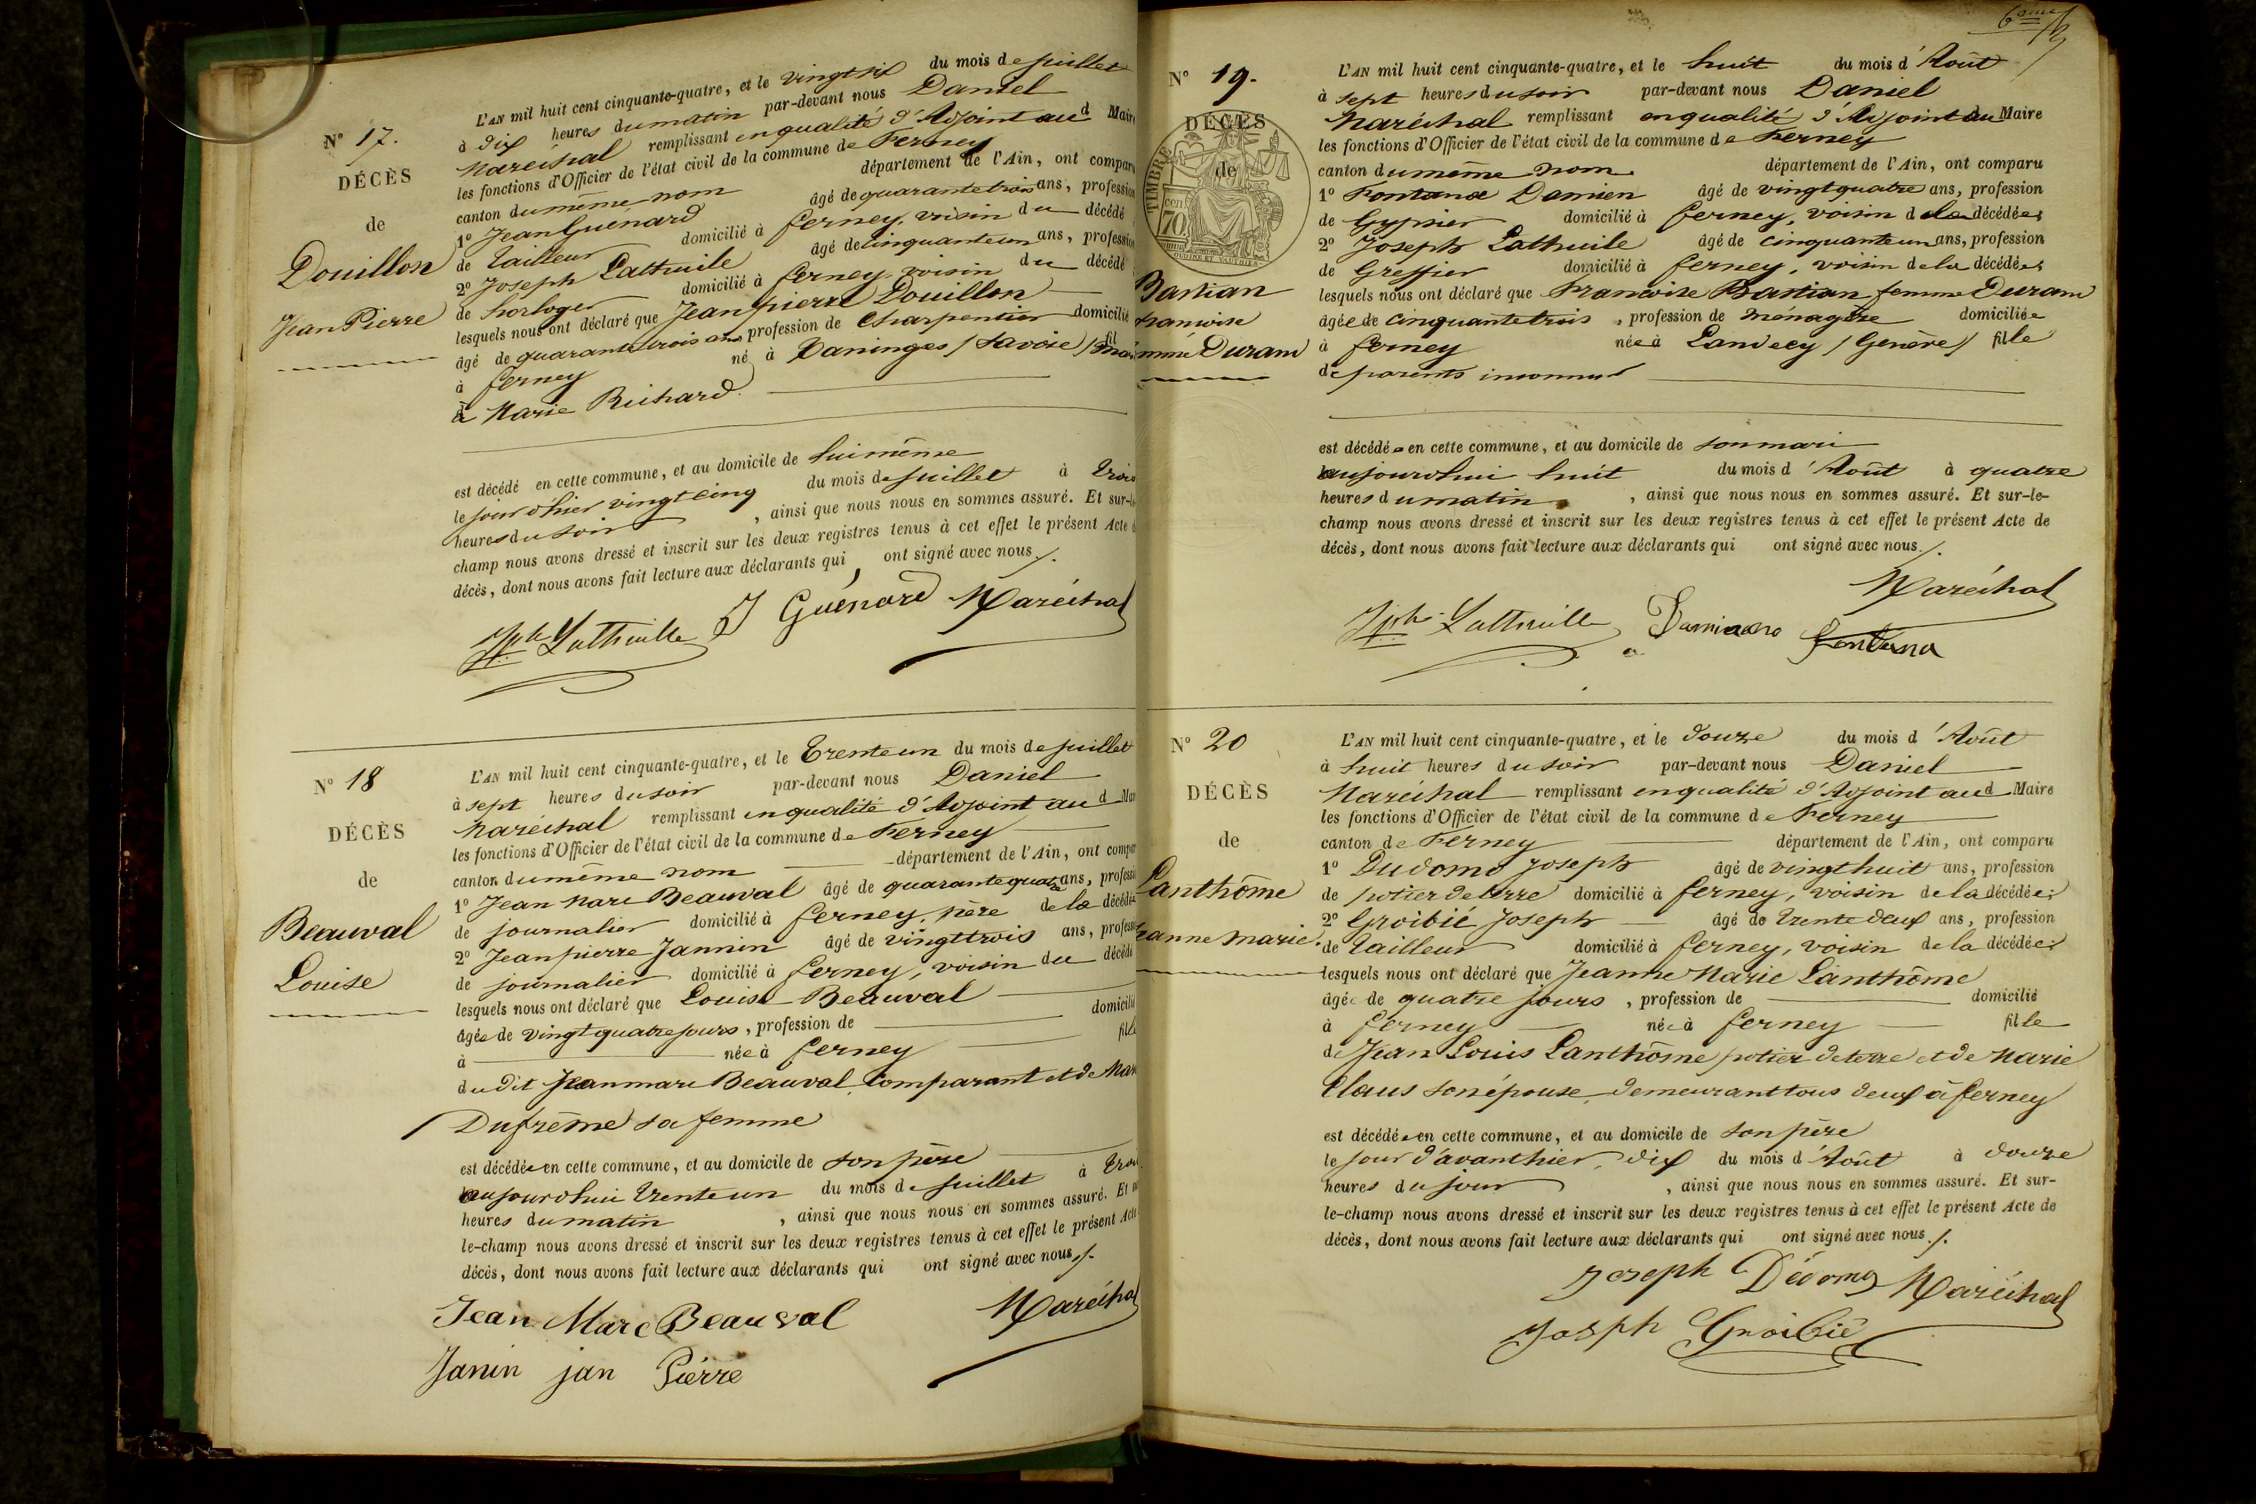 N° 17.
DÉCÈS
de
Douillon
Jean Pierre
L'AN mil huit cent cinquante-quatre, et le vingt six du mois de juillet
à dix heures du matin par-devant nous Daniel
Maréchal remplissant en qualité d'Adjoint aud Maire
les fonctions d'Officier de l'état civil de la commune de Ferney
canton du même nom département de l'Ain, ont comparu
1° Jean Guenard âgé de quarante trois ans, profession
de tailleur domicilié à ferney, voisin du décédé
2° Joseph Lathuile âgé de cinquante un ans, profession
de horloger domicilié à ferney voisin du décédé
lesquels nous ont déclaré que Jean pierre Douillon
âgé de quarante trois ans, profession de Charpentier domicilié
à ferney né à Taninges / Savoie / fil
à Marie Richard
est décédé en cette commune, et au domicile de lui même
le jour d'hier vingt cinq du mois de juillet à trois
heures du soir, ainsi que nous nous en sommes assuré. Et sur-le-
champ nous avons dressé et inscrit sur les deux registres tenus à cet effet le présent Acte d
décès, dont nous avons fait lecture aux déclarants qui ont signé avec nous /.
Jph Lathuille J Guénard Maréchal
N° 18
DÉCÈS
de
Beauval
Louise
L'AN mil huit cent cinquante-quatre, et le trente un du mois de juillet
à sept heures du soir par-devant nous Daniel
Maréchal remplissant en qualité d'Adjoint aud Mai
les fonctions d'Officier de l'état civil de la commune de Ferney
canton du même nom département de l'Ain, ont compar
1° Jean Marc Beauval âgé de quarante quatre ans, professi
de journalier domicilié à ferney, père de la décédée
2° Jean pierre Jannin âgé de vingt trois ans, profess
de journalier domicilié à ferney, voisin du décédé
lesquels nous ont déclaré que Louise Beauval
âgée de vingt quatre jours, profession de domicilié
à née à ferney fille
du dit Jean marc Beauval, Comparant et de Mar
Dufrême sa femme
est décédée en cette commune, et au domicile de son père
aujourdhui trente un du mois de juillet à trois
heures du matin, ainsi que nous nous en sommes assuré. Et
le-champ nous avons dressé et inscrit sur les deux registres tenus à cet effet le présent Acte
décès, dont nous avons fait lecture aux déclarants qui ont signé avec nous /.
Jean Marc Beauval Maréchal
Janin jan Pierre
6ème
N° 19.
DÉCÈS
de
TIMBRE
70 cent
Bastian
francoise
femme Durand
L'AN mil huit cent cinquante-quatre, et le huit du mois d'Août
à sept heures du soir par-devant nous Daniel
Maréchal remplissant en qualité d'Adjoint au Maire
les fonctions d'Officier de l'état civil de la commune de Ferney
canton du même nom département de l'Ain, ont comparu
1° Fontana Damien âgé de vingt quatre ans, profession
de Gypsier domicilié à ferney, voisin de la décédée,
2° Joseph Lathuile âgé de cinquante un ans, profession
de Greffier domicilié à ferney, voisin de la décédée,
lesquels nous ont déclaré que Francoise Bastian femme Durand
âgée de cinquante trois, profession de ménagère domiciliée
à ferney née à Landecy / Genève / fille
de parents inconnus
est décédée en cette commune, et au domicile de son mari
aujourdhui huit du mois d'Août à quatre
heures du matin, ainsi que nous nous en sommes assuré. Et sur-le-
champ nous avons dressé et inscrit sur les deux registres tenus à cet effet le présent Acte de
décès, dont nous avons fait lecture aux déclarants qui ont signé avec nous. /.
Maréchal
Jph Lathuille Damiano fontana
N° 20
DÉCÈS
de
Lanthôme
Jeanne marie
L'AN mil huit cent cinquante-quatre, et le douze du mois d'Août
à huit heures du soir par-devant nous Daniel
Maréchal remplissant en qualité d'Adjoint aud Maire
les fonctions d'Officier de l'état civil de la commune de Ferney
canton de Ferney département de l'Ain, ont comparu
1° Dudomo Joseph âgé de vingt huit ans, profession
de potier de terre domicilié à ferney, voisin de la décédée;
2° Groibié Joseph âgé de trente deux ans, profession
de tailleur domicilié à ferney, voisin de la décédée;
lesquels nous ont déclaré que Jeanne Marie Lanthôme
âgée de quatre jours, profession de domicilié
à ferney née à ferney fille
de Jean Louis Lanthôme potier de terre et de Marie
Claus son épouse, demeurant tous deux à ferney
est décédée en cette commune, et au domicile de son père
le jour d'avanthier, dix du mois d'Août à douze
heures du jour, ainsi que nous nous en sommes assuré. Et sur-
le-champ nous avons dressé et inscrit sur les deux registres tenus à cet effet le présent Acte de
décès, dont nous avons fait lecture aux déclarants qui ont signé avec nous. /.
Joseph Dédomo Maréchal
Joseph Groibié